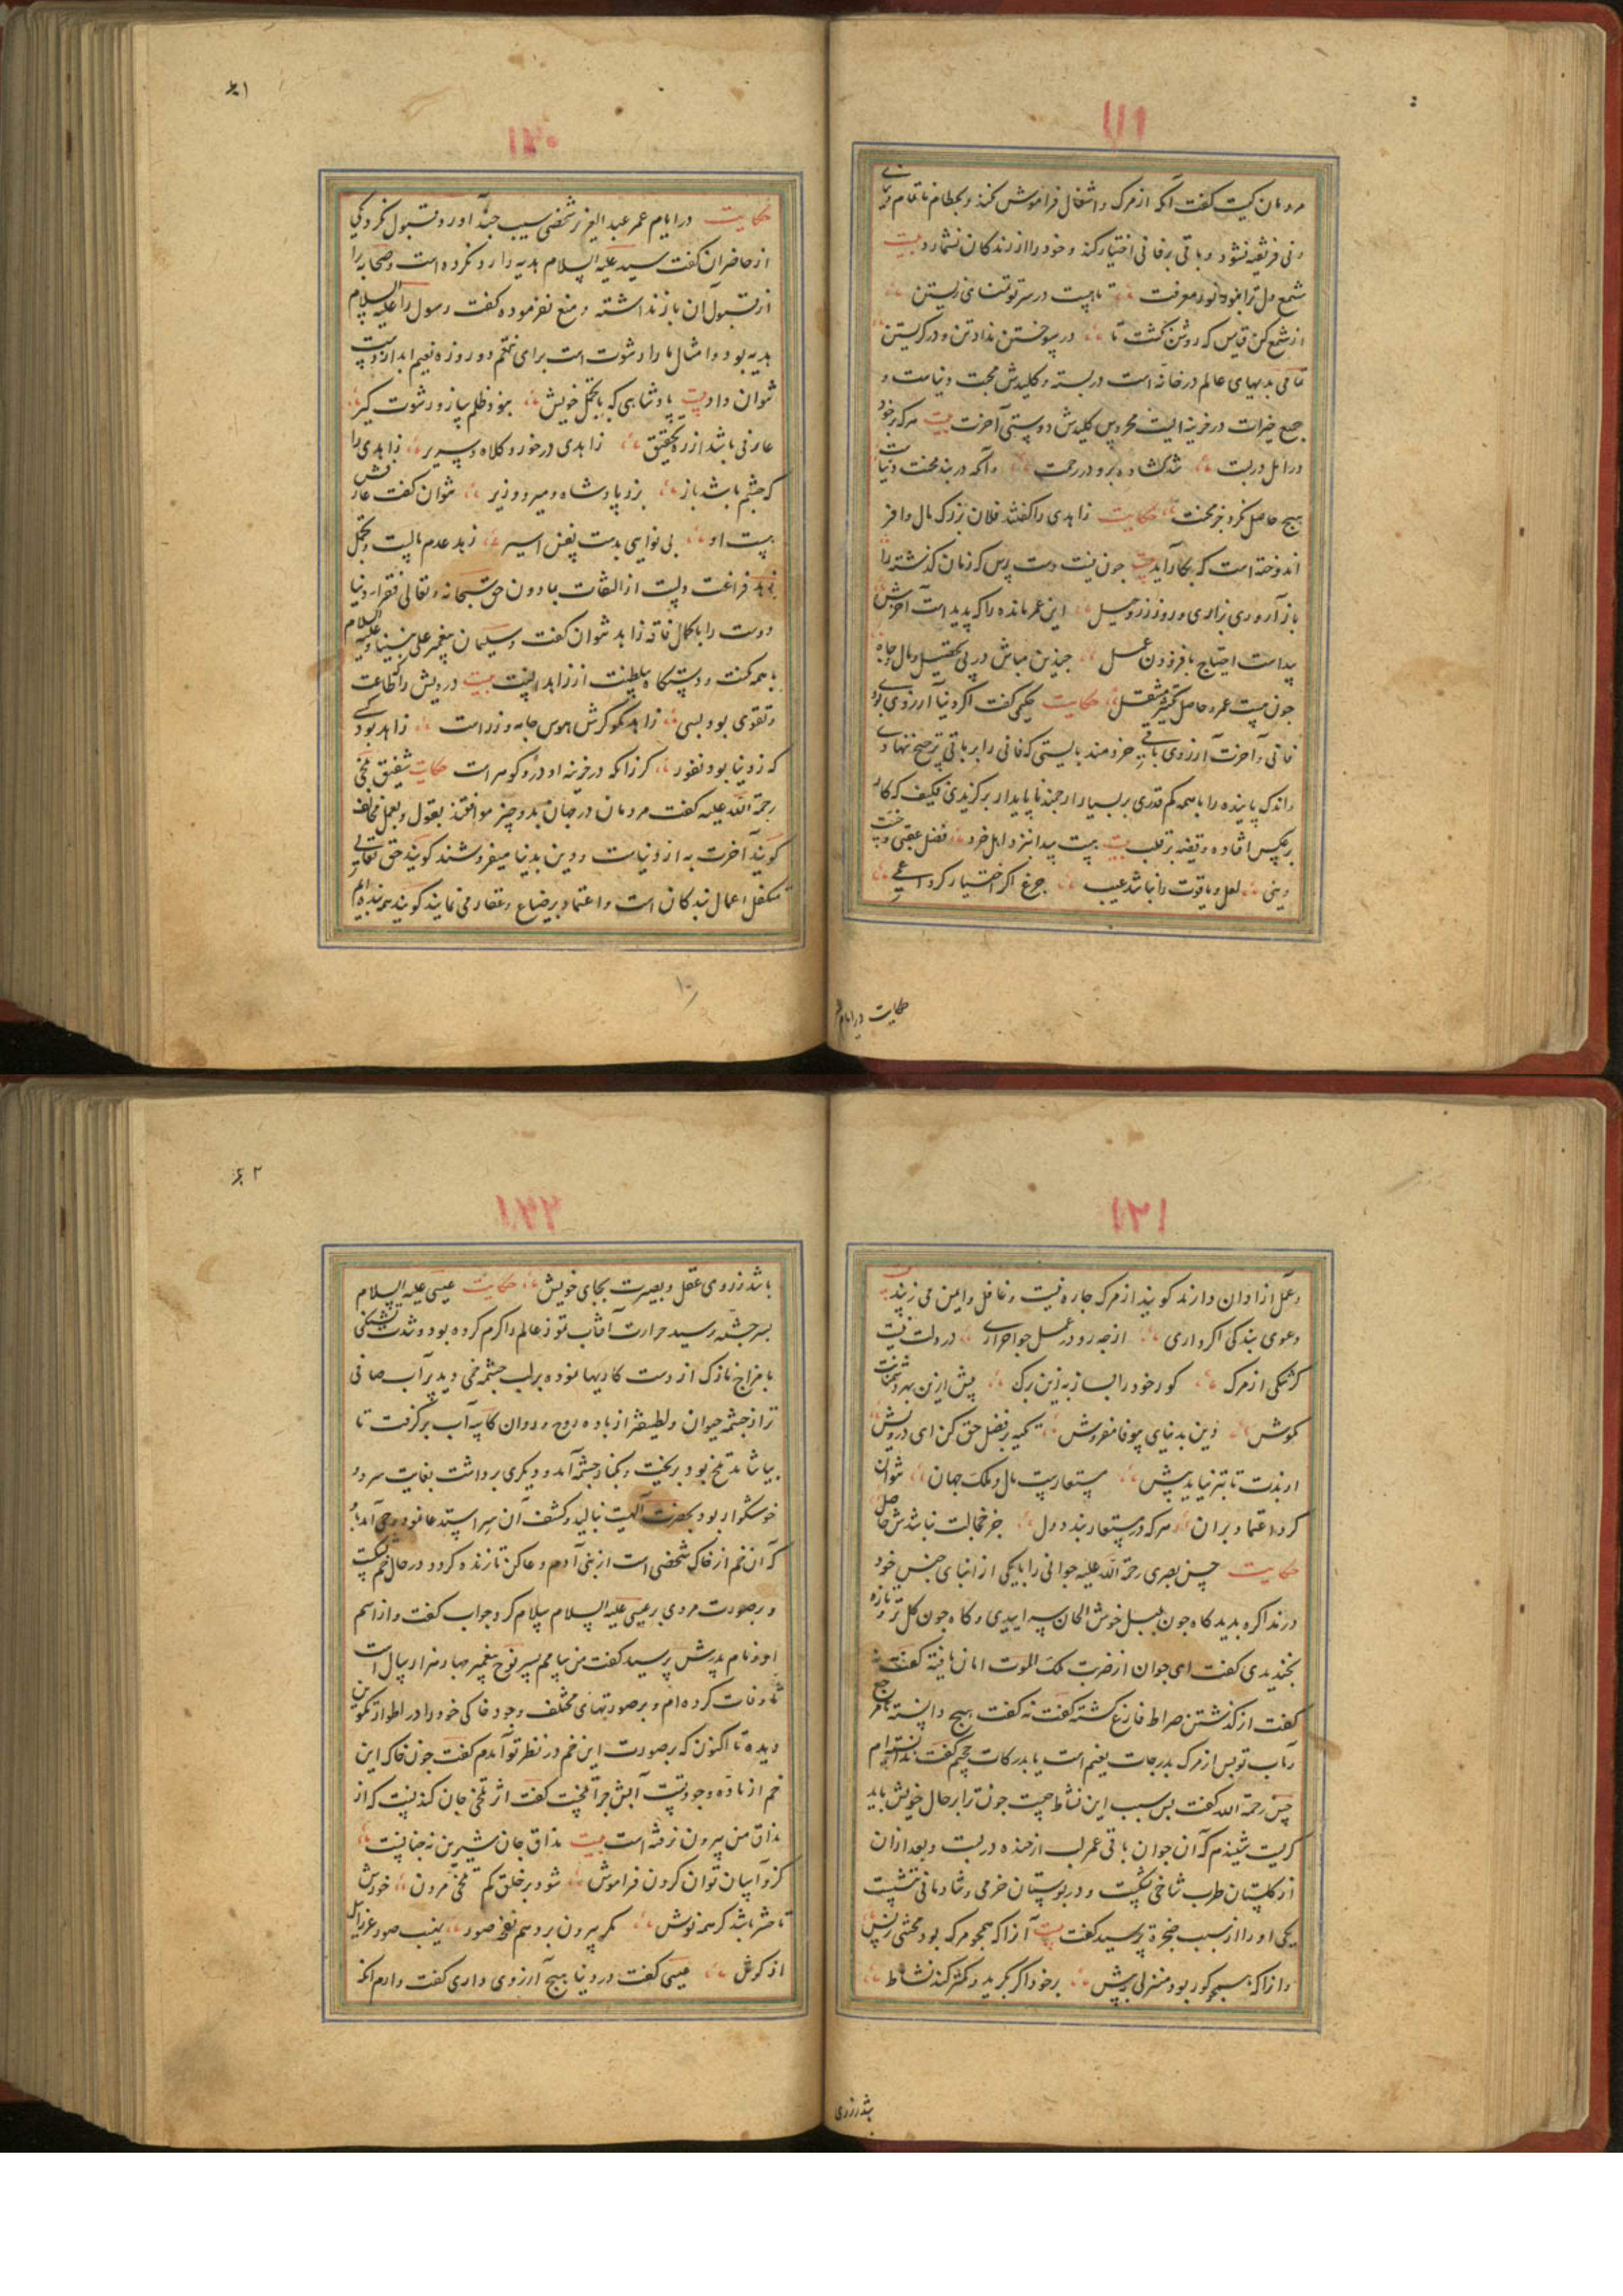 ۱۱۹
مردمان کیست گفت آنکه از مرک و اشغال فراموش نکند و بحطام ناتمام دنیای
دنی فریفته نشود و باقی بر فانی اختیار کند و خود را از زندکان نشمارد بیت
شمع دل ترا نبود نور معرفت تا هست در سر تو تمنای زیستن
از شمع کن قیاس که روشن نکشت تا در سوختن نداد تن و در کریستن
تمامی بدیهای عالم در خانه است در بسته و کلیدش محبت دنیاست و
جمیع خیرات در خزینه ایست محروس کلیدش دوستی آخرت بیت هرکه بر خود
در امل در بست شد کشاده برو در رحمت وآنکه در بند محنت دنیاست
هیچ حاصل نکرد جز محنت حکایت زاهدی را گفتند فلان بزرک مال وافر
اندوخته است که بکار آید بیت چون نیست دست رس که زمان گذشته را
باز آروری بزاری و روز زر و حیل این عمر مانده را که پدید است آخرش
پیداست احتیاج بافزودن عمل چندین مباش در پی تحصیل مال و جاه
چون نیست عمر و حاصل حکایت حکیمی گفت اگر دنیا آرزوی بودی
فانی و آخرت آرزوی باقی خردمند بایستی که فانی را بر باقی ترجیح ننهادی
و اندک پاینده را باهمه کم قدری بر بسیار ارجمند ناپایدار برگزیدی فکیف که کار
برعکس افتاده و قضیه بر قلب بیت هست پیدا نزد اهل خرد فضل عقبی و خست
دینی لعل و یاقوت را نباشد عیب جزع اگر اختیار کرد اعمی
حکایت در ایام عمر
۶۱
۱۲۰
حکایت در ایام عمر عبد العزیز شخصی سیب جبّه آورد و قبول نکرد یکی
از حاضران گفت سید علیه السلام هدیه را رد نکرده است و صحابه را
از قبول آن باز نداشته و منع نفرموده گفت رسول را علیه السلام
هدیه بود و امثال ما را رشوت است برای تنعّم دو روزه نعیم ابد از دست
نتوان داد بیت پادشاهی که با تجمّل خویش بنود ظلم ساز و رشوت کیر
عارفی باشد از ره تحقیق زاهدی در خور و کلاه و سریر زاهدی را
که چشم باشد باز بزد پادشاه و میر و وزیر نتوان گفت عارفش
هست او بی نوایی بدست نفس اسیر زهد عدم مالیت و تجمّل
زهد فراغت دلست از التفات بمادون حق سبحانه و تعالی فقرا دنیا
دوست را با کمال فاقه زاهد نتوان گفت و سلیمان پیغمبر علی نبینا و علیه السلام
با همه مکنت و دستکاه سلطنت از زاهدانست بیت درویش را قناعت
و تقوی بود بسی زاهد مکو کرش هوس جامه و زر است زاهد بود کسی
که ز دنیا بود نفور کرزانکه در خزینه او در و گوهر است حکایت شقیق بلخی
رحمة الله علیه گفت مردمان در جهان بدو چیز موافقند بقول و بعمل مخالف
گویند آخرت به از دنیاست و دین بدنیا میفروشند گویند حق تعالی
متکفل اعمال بندکان است و اعتماد بر ضیاع و عقار می نمایند گویند همه بنده ایم
۱۰
۱۲۱
و عمل ازادان دارند گویند از مرک چاره نیست و غافل و ایمن می زیند بیت
دعوی بندکی اگر داری از چه رو در عمل چو احراری در دلت نیست
کرشکی از مرک کور خود را بساز به زین برک پیش ازین بهر دشمنانت
مکوش دین بدنیای بیوفا مفروش تکیه بر فضل حق کن ای درویش
اوبدت تا بتر نیاید پیش مستعاریست مال و ملک جهان نتوان
کرد اعتماد بر ان هرکه در مستعار بندد دل جز خجالت نباشدش حاصل
حکایت حسن بصری رحمة الله علیه جوانی را با یکی از انبای جنس خود
در مذاکره بدید کاه چون بلبل خوش الحان سراییدی و کاه چون کل تر و تازه
بخندیدی گفت ای جوان از ضربت ملک الموت امان یافته گفت نه
گفت از گذشتن صراط فارغ گشته گفت نه گفت هیچ دانسته
مآب تو پس از مرک بدرجات نعیم است یا بدرکات جحیم گفت ندانسته ام
حسن رحمة الله گفت پس سبب این نشاط چیست چون ترا بر حال خویش باید
گریست شنیدم که آن جوان باقی عمر لب از خنده در بست و بعد از ان
از گلستان طرب شاخی نشکست و در بوستان خرمی و شادمانی ننشست
یکی او را از سبب ضجرة پرسید گفت بیت آنرا که همچو مرک بود محنتی ز پس
وانرا که همچو کور بود منزلی به پیش بر خود اگر بگرید و کمتر کند نشاط
باشد ز روی
۶۲
۱۲۲
باشد ز روی عقل و بصیرت بجای خویش حکایت عیسی علیه السلام
بسر چشمه رسید حرارت آفتاب تموز عالم را گرم کرده بود و شدت تشنکی
با مزاج نازک از دست کاریها نموده بر لب چشمه خمی دید پر آب صافی
تر از چشمه حیوان و لطیفتر از باده روح و روان کاسه آب برگرفت تا
بیاشامد تلخ بود بریخت و بکنار چشمه آمد و دیگری برداشت بغایت سرد و
خوشگوار بود بحضرت الهیت بنالید و کشف آن سر استدعا نمود وحی آمد
که آن خم از خاک شخصی است از بنی آدم دعا کن تا زنده کردد در حال خم بشکست
و بر صورت مردی بر عیسی علیه السلام سلام کرد جواب گفت و از اسم
او و نام پدرش پرسید گفت من سام پسر نوح پیغمبر چهار هزار سال است
تا وفات کرده ام و بر صورتهای مختلف وجود خاکی خود را در اطوار تکوین
دیده تا اکنون که بر صورت این خم در نظر تو آمدم گفت چون خاک این
خم از ماده وجود تست آبش چرا تلخست گفت اثر تلخی جان کندنست که از
مذاق من بیرون نرفته است بیت مذاق جان شیرین نه چنانست
کزو آسان توان کردن فراموش شود بر خلق کم تلخی مردن خورش
تا حشر باشد گر همه نوش مکر بیرون برد هم نفخ صور نهیب صور عزرائیل
از گوش عیسی گفت در دنیا هیچ آرزوی داری گفت دارم آنکه